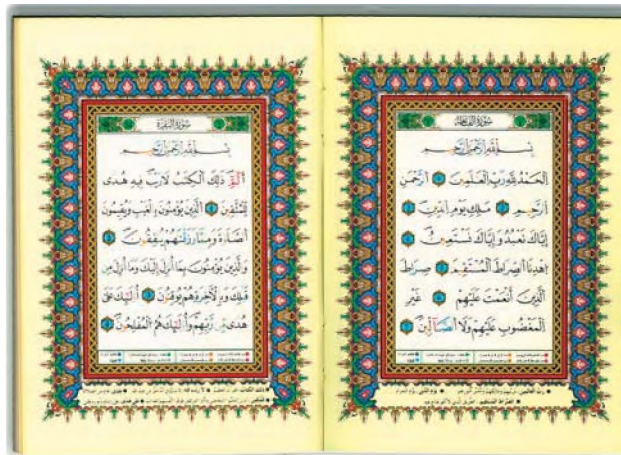 سُورَةُ الفَاتِحَةِ
بِسْمِ اللَّهِ الرَّحْمَٰنِ الرَّحِيمِ
الْحَمْدُ لِلَّهِ رَبِّ الْعَٰلَمِينَ ٢ الرَّحْمَٰنِ
الرَّحِيمِ ٣ مَٰلِكِ يَوْمِ الدِّينِ ٤
إِيَّاكَ نَعْبُدُ وَإِيَّاكَ نَسْتَعِينُ ٥
اهْدِنَا الصِّرَٰطَ الْمُسْتَقِيمَ ٦ صِرَٰطَ
الَّذِينَ أَنْعَمْتَ عَلَيْهِمْ غَيْرِ
الْمَغْضُوبِ عَلَيْهِمْ وَلَا الضَّالِّينَ ٧
سُورَةُ البَقَرَةِ
بِسْمِ اللَّهِ الرَّحْمَٰنِ الرَّحِيمِ
الٓمٓ ذَٰلِكَ الْكِتَٰبُ لَا رَيْبَ فِيهِ هُدًى
لِّلْمُتَّقِينَ ٢ الَّذِينَ يُؤْمِنُونَ بِالْغَيْبِ وَيُقِيمُونَ
الصَّلَوٰةَ وَمِمَّا رَزَقْنَٰهُمْ يُنفِقُونَ ٣
وَالَّذِينَ يُؤْمِنُونَ بِمَا أُنزِلَ إِلَيْكَ وَمَا أُنزِلَ مِن
قَبْلِكَ وَبِالْآخِرَةِ هُمْ يُوقِنُونَ ٤ أُولَٰئِكَ عَلَىٰ
هُدًى مِّن رَّبِّهِمْ وَأُولَٰئِكَ هُمُ الْمُفْلِحُونَ ٥